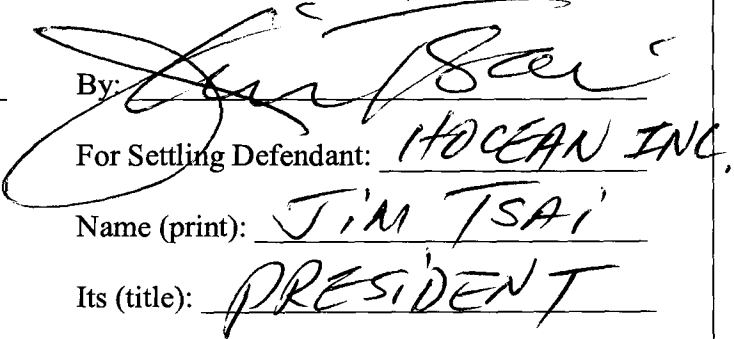 By: Jim Tsai
For Settling Defendant: HOCEAN INC.
Name (print): JIM TSAI
Its (title): PRESIDENT